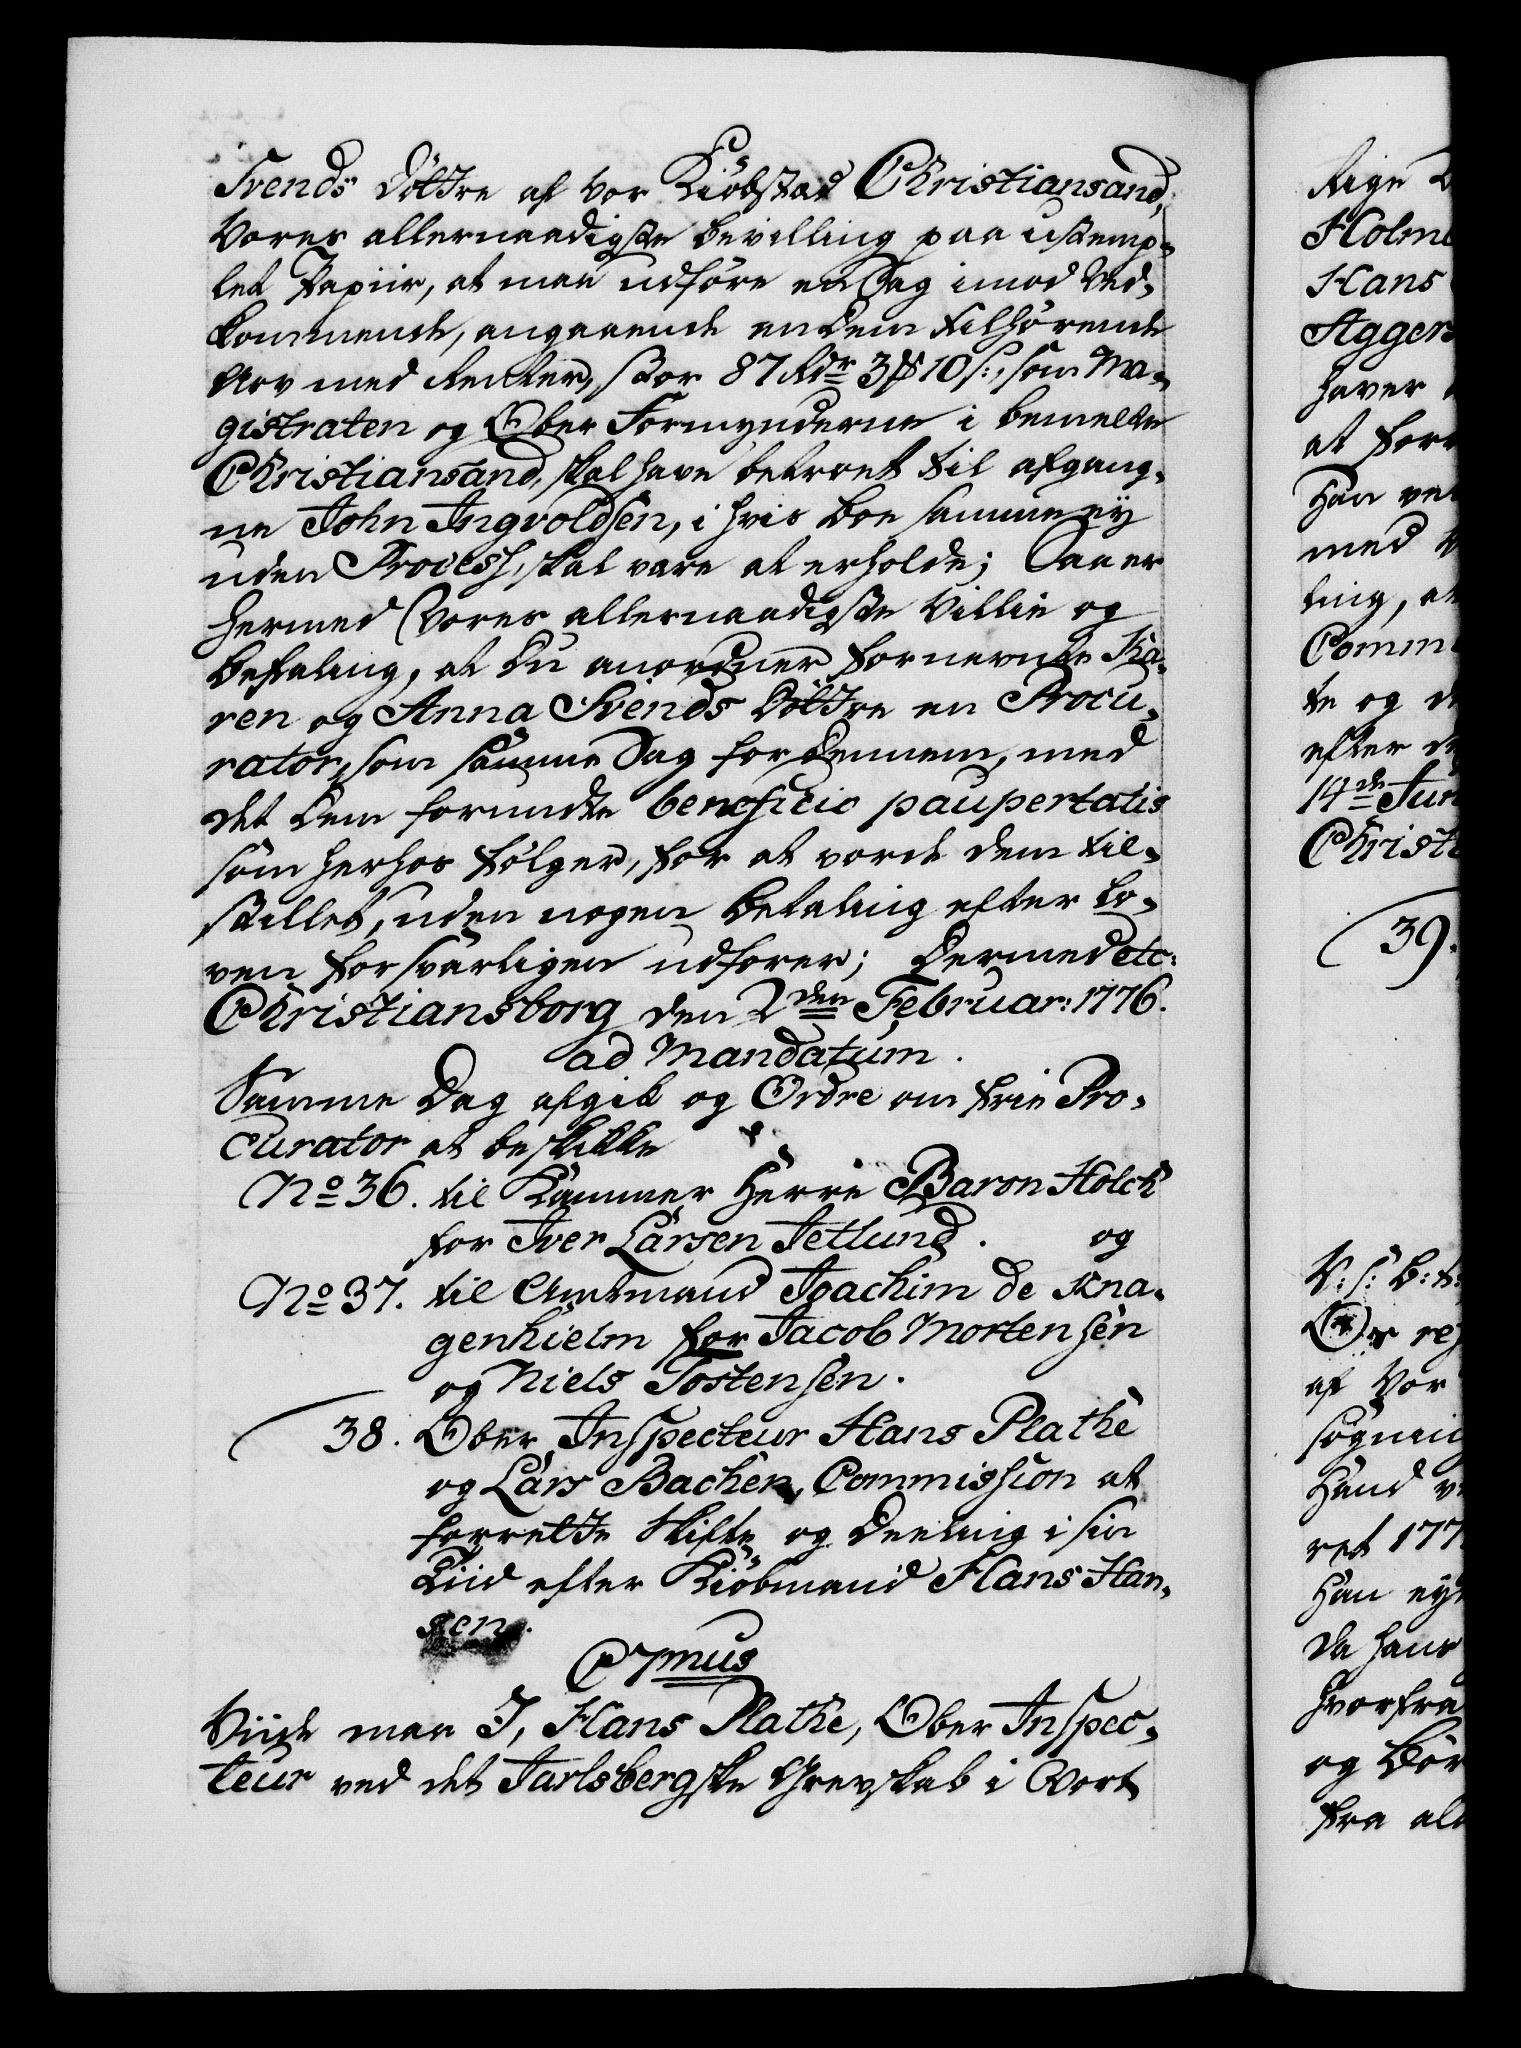 Svends Døttre af vor Kiøbstad Christiansand,
Vores allernaadigste bevilling paa ustemp-
let Papiir, at maa udføre en Sag imod Ved-
kommende, angaaende en dem tilhørende
Arv med Renter, stor 87 Rdr 3 # 10 s:, som Ma-
gistraten og Ober Formynderne i bemelte
Christiansand, skal have betroet til afgang-
ne John Ingvoldsen, i hvis boe samme ey
uden Process, skal være at erholde; Saa er
hermed Vores allernaadigste Villie og
befaling, at du anordner fornevnte Ka-
ren og Anna Svends Døttre en Procu-
rator, som samme Sag for dennem, med
det dem forundte beneficio paupertatis
som herhos følger, for at vorde dem til-
stillet, uden nogen betaling efter Lo-
ven forsvarligen udfører; Dermed etc:
Christiansborg den 2den Februar: 1776.
ad Mandatum.
Samme Dag afgik og Ordre om frie Pro-
curator at beskikke
No 36. til Kammer Herre Baron Holck
for Iver Larsen Jetlund. og
No 37. til Amtmand Joachim de Kna-
genhielm for Jacob Mortensen
og Niels Tostensen.
38. Ober Inspecteur Hans Plathe
og Lars Bachen, Commission at
forrette Skifte og Deeling i sin
Tiid efter Kiøbmand Hans Han-
sen.
C 7mus
Viide maa I, Hans Plathe, Ober Inspec-
teur ved det Jarlsbergske Grevskab i Vort
Rige
Holm
Hans
Agger
haver
at for
han ve
med
ling, at
Comm
te og
efter
14de Jun
Christ
39.
V: S: B: t:
af Vor
søgni
Haand
ret 177
Han ey
da hans
hvorfra
og Bør
fra al